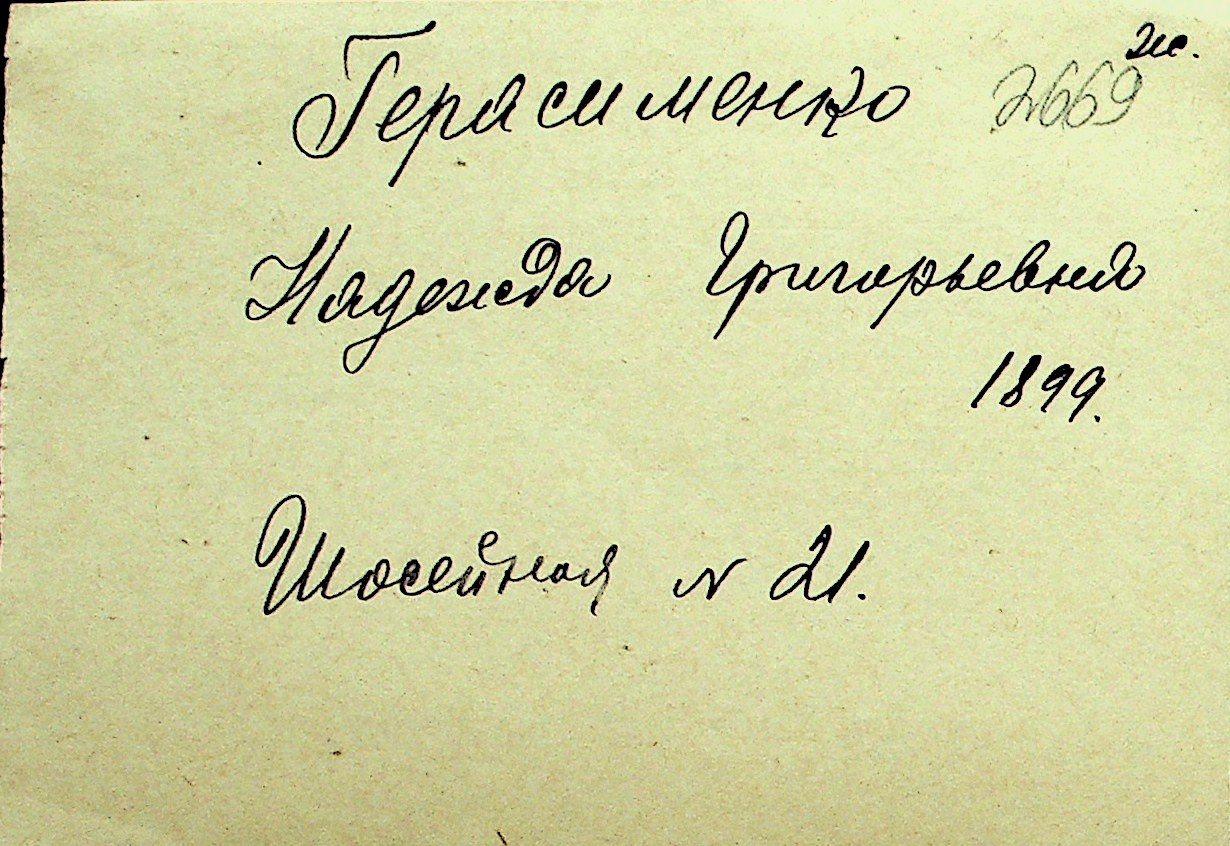 ж.
Герасименко 2669
Надежда Григорьевна
1899.
Шосейная N 21.